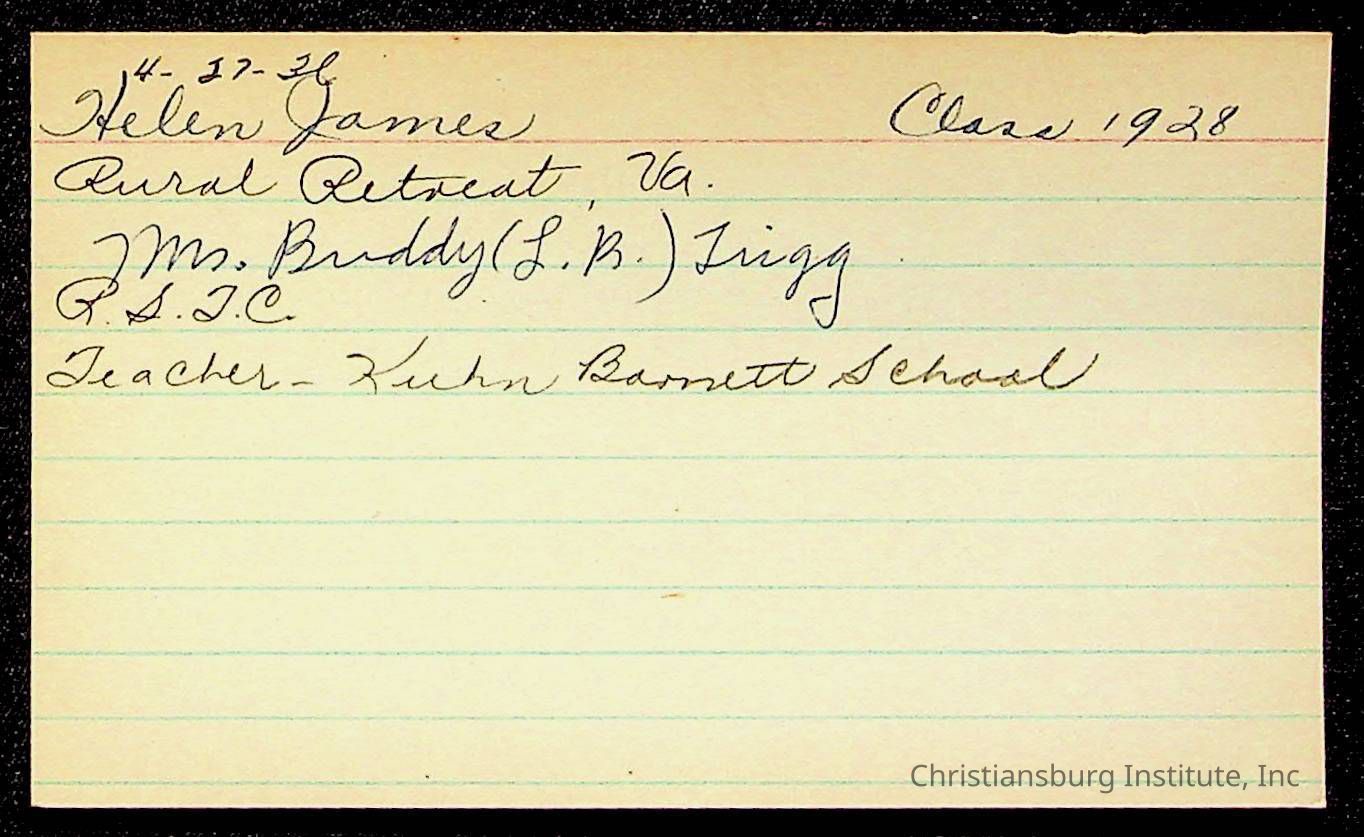 4-27-28
Helen James Class 1928
Rural Retreat, Va.
Mrs. Buddy (L. B.) Trigg
R. S. T. C.
Teacher - Kuhn Barnett School
Christiansburg Institute, Inc